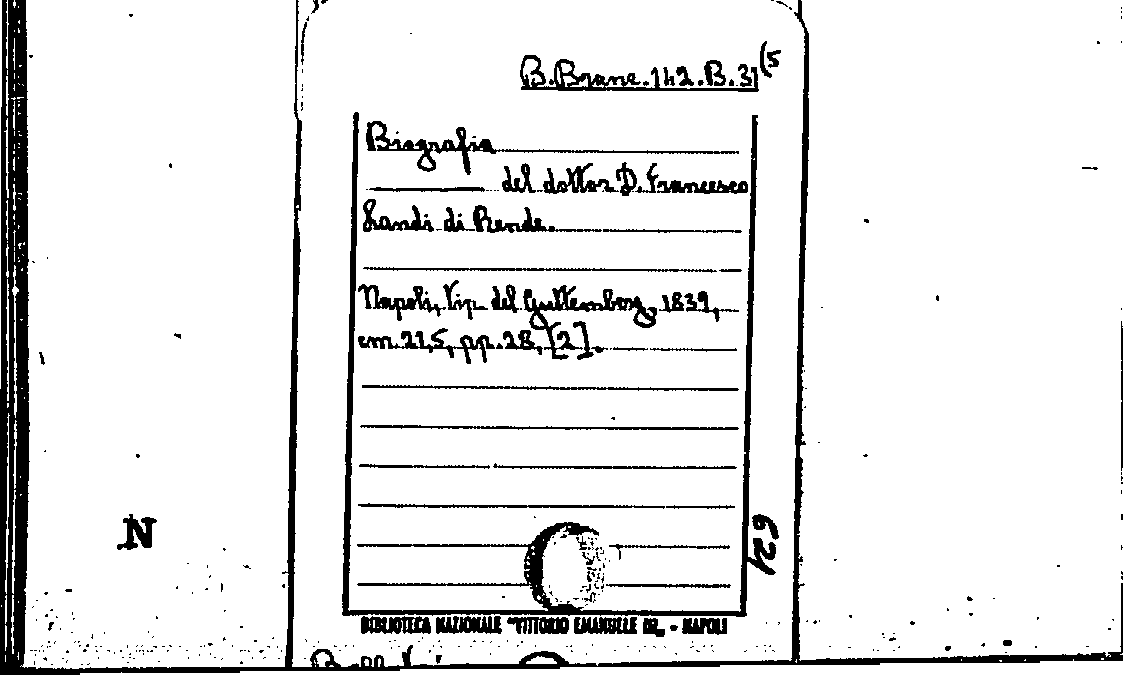 B.Branc.142.B.31(5
Biografia
del dottor D. Francesco
Landi di Rende.
Napoli, Tip. del Guttemberg, 1839,
cm.21,5, pp.28,[2].
N
624
BIBLIOTECA NAZIONALE "VITTORIO EMANUELE III„ - NAPOLI